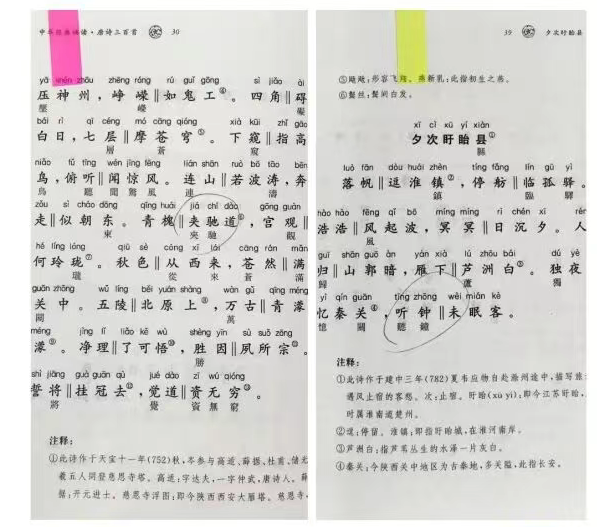 中华经典诵读·唐诗三百首 30
yā shén zhōu zhēng róng rú guǐ gōng sì jiǎo ài
压神州，峥嵘‖如鬼工④。四角‖碍
壓 嶸 礙
bái rì qī céng mó cāng qióng xià kuī zhǐ gāo
白日，七层‖摩苍穹⑤。下窥‖指高
層 蒼 窺
niǎo fǔ tīng wén jīng fēng lián shān ruò bō tāo bēn
鸟，俯听‖闻惊风。连山‖若波涛，奔
鳥 聽 聞驚風 連 濤
zǒu sì cháo dōng qīng huái jiā chí dào gōng guàn
走‖似朝东。青槐‖夹驰道⑥，宫观‖
東 夾馳 觀
hé líng lóng qiū sè cóng xī lái cāng rán mǎn
何玲珑⑦。秋色‖从西来，苍然‖满
瓏 從 來 蒼 滿
guān zhōng wǔ líng běi yuán shàng wàn gǔ qīng méng
关中。五陵‖北原上⑧，万古‖青濛
關 萬
méng jìng lǐ liǎo kě wù shèng yīn sù suǒ zōng
濛⑨。净理‖了可悟⑩，胜因‖夙所宗
勝
shì jiāng guà guān qù jué dào zī wú qióng
誓将‖挂冠去⑫，觉道‖资无穷⑬。
將 覺 資無窮
注释：
①此诗作于天宝十一年(752)秋，岑参与高适、薛据、杜甫、储光
羲五人同登慈恩寺塔。高适：字达夫，一字仲武，唐诗人。薛
据：开元进士。慈恩寺浮图：即今陕西西安大雁塔。慈恩寺，
39 夕次盱眙县
⑤飐飐：形容飞翔。燕新乳：此指初生之燕。
⑥鬓丝：鬓间白发。
xī cì xū yí xiàn
夕次盱眙县①
縣
luò fān dòu huái zhèn tíng fǎng lín gū yì
落帆‖逗淮镇②，停舫‖临孤驿。
鎮 臨 驛
hào hào fēng qǐ bō míng míng rì chén xī rén
浩浩‖风起波，冥冥‖日沉夕。人
風
guī shān guō àn yàn xià lú zhōu bái dú yè
归‖山郭暗，雁下‖芦洲白③。独夜
歸 蘆 獨
yì qín guān tīng zhōng wèi mián kè
忆秦关④，听钟‖未眠客。
憶 關 聽鐘
注释：
①此诗作于建中三年(782)夏韦应物自赴滁州途中，描写旅
遇风止宿的客愁。次：止宿。盱眙(xū yí)：即今江苏盱眙，
时属淮南道楚州。
②逗：停留。淮镇：即指盱眙城，在淮河南岸。
③芦洲白：指芦苇丛生的水泽一片灰白。
④秦关：今陕西关中地区为古秦地，多关隘，此指长安。